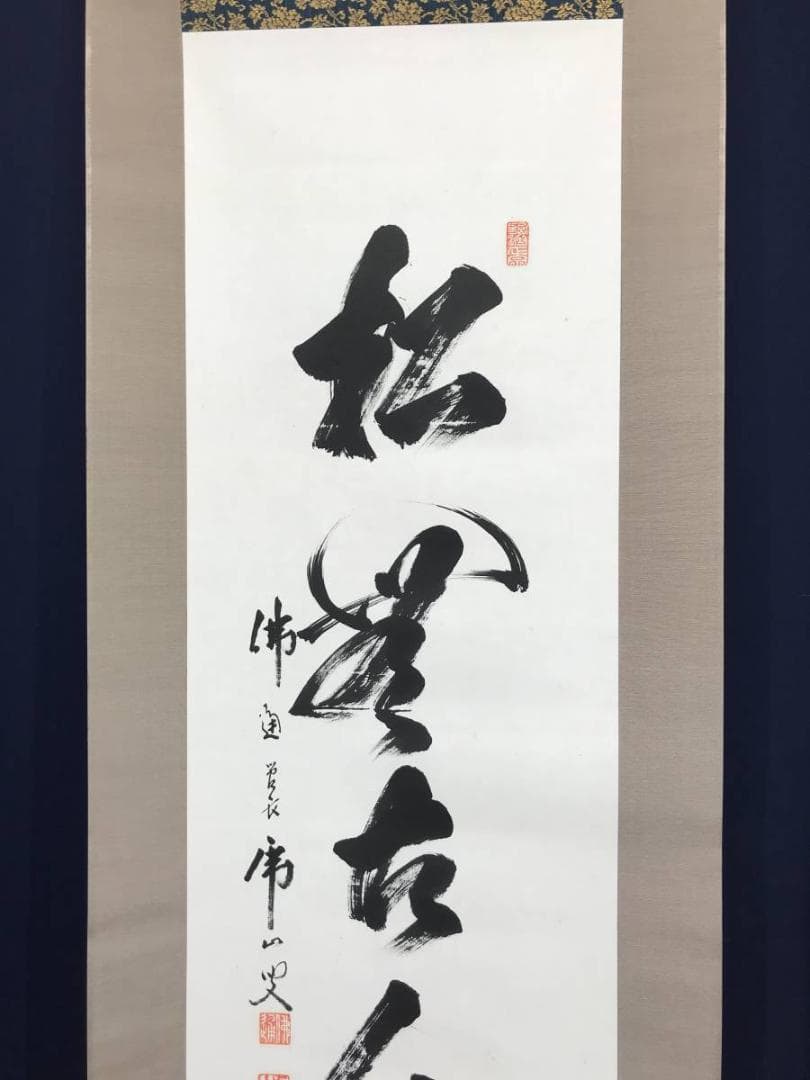 松無古今
佛通管長 虎山叟